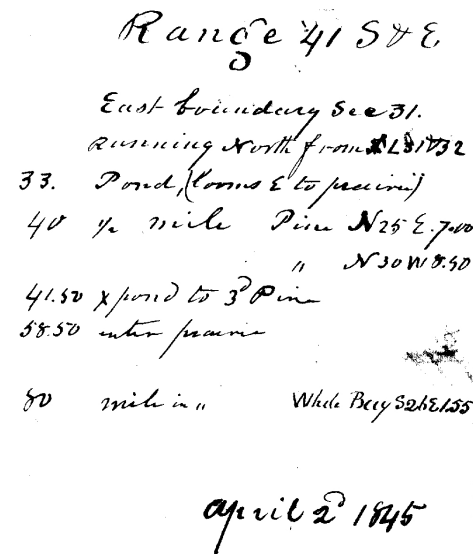 Range 41 S & E
East boundary Sec 31.
Running North from 31 & 32
33. Pond, (looms E to prairie)
40 ½ mile Pine N 25 E. 7.00
" N 30 W 8.50
41.50 x pond to 3d Pine
58.50 enter prairie
80 mile in " White Bay S 26 E 1.55
april 2d 1845